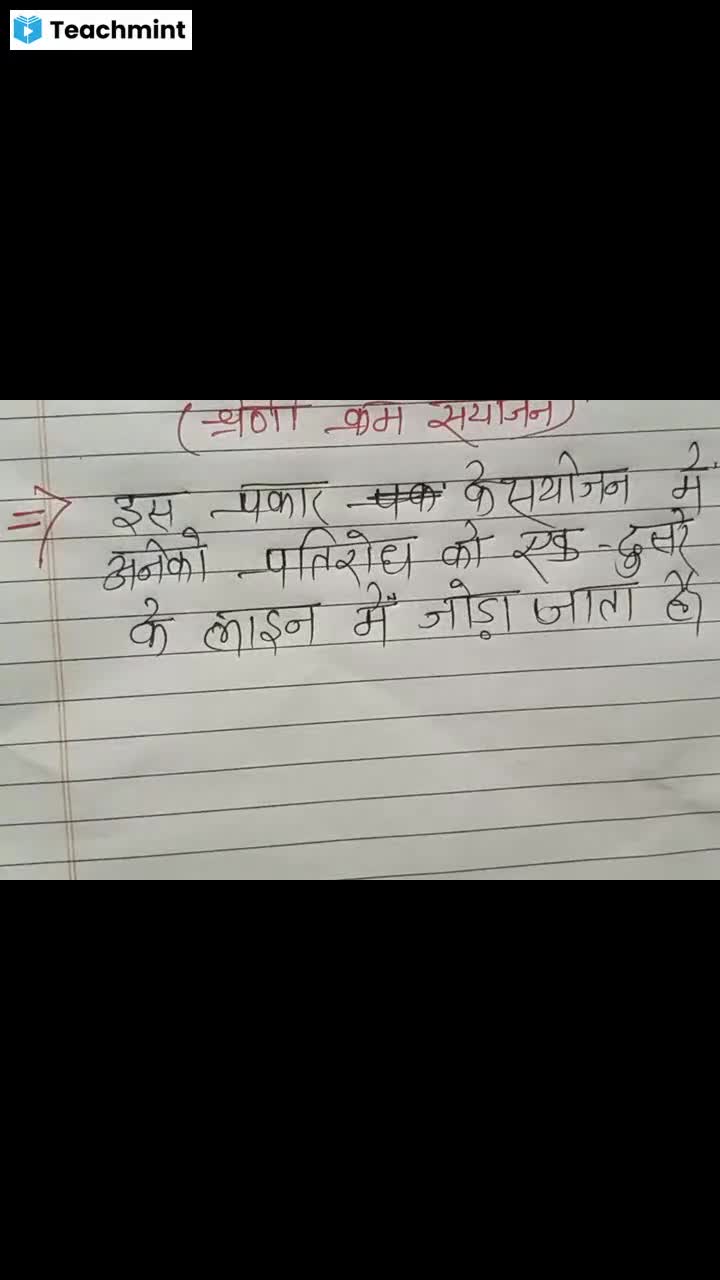 Teachmint
(श्रेणी क्रम संयोजन)
=> इस प्रकार के सयोजन में
अनेको प्रतिरोध को एक-दुसरे
के लाइन में जोड़ा जाता है।